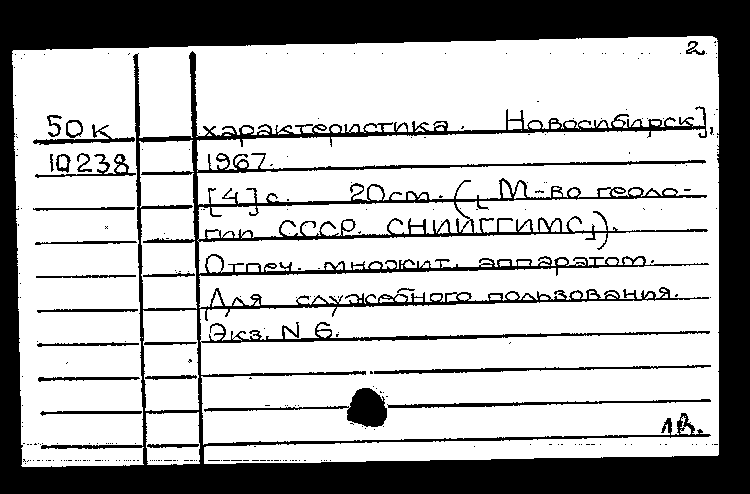 2
50к характеристика. Новосибирск],
10238 1967.
[4]с. 20cm. ([М-во геоло-
гии СССР. СНИИГГИМС]).
Отпеч. множит. аппаратом.
Для служебного пользования.
Экз. N 6.
1В.